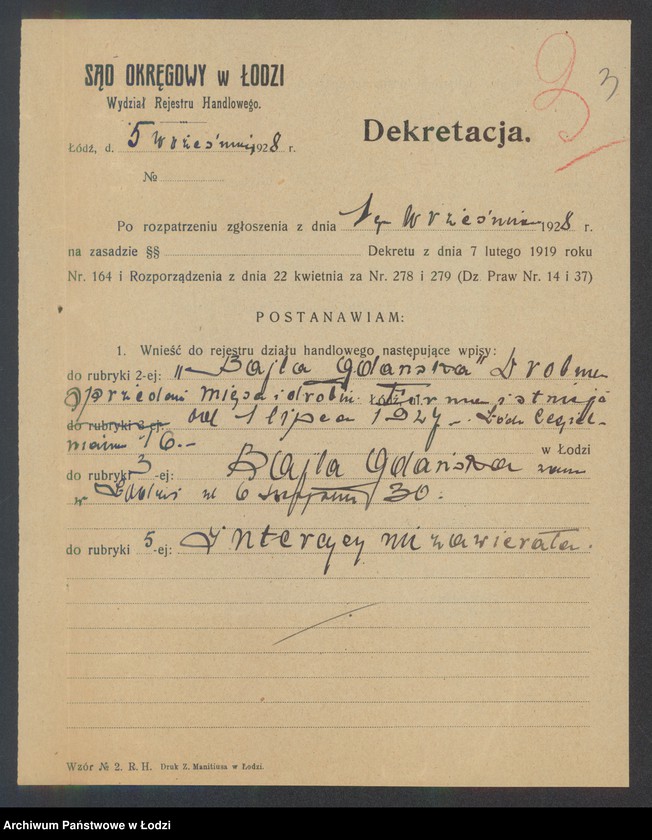 SĄD OKRĘGOWY w ŁODZI
Wydział Rejestru Handlowego.
3
3
Dekretacja.
Łódź, d. 5 września 1928 r.
№
Po rozpatrzeniu zgłoszenia z dnia 1 września 1928 r.
na zasadzie §§ Dekretu z dnia 7 lutego 1919 roku
Nr. 164 i Rozporządzenia z dnia 22 kwietnia za Nr. 278 i 279 (Dz. Praw Nr. 14 i 37)
POSTANAWIAM:
1. Wnieść do rejestru działu handlowego następujące wpisy:
do rubryki 2-ej: „Bajla Gdańska" Drobna
sprzedaż mięsa i drobiu. Łódź, ul. Firma istnieje
do rubryki -ej: od 1 lipca 1927. Łódź Cegiel-
niana 16.-
w Łodzi
do rubryki 3-ej: Bajla Gdańska zam
w Łodzi ul 6 sierpnia 30.
do rubryki 5-ej: Intercyzy nie zawierała.
Wzór № 2. R. H. Druk Z. Manitiusa w Łodzi.
Archiwum Państwowe w Łodzi